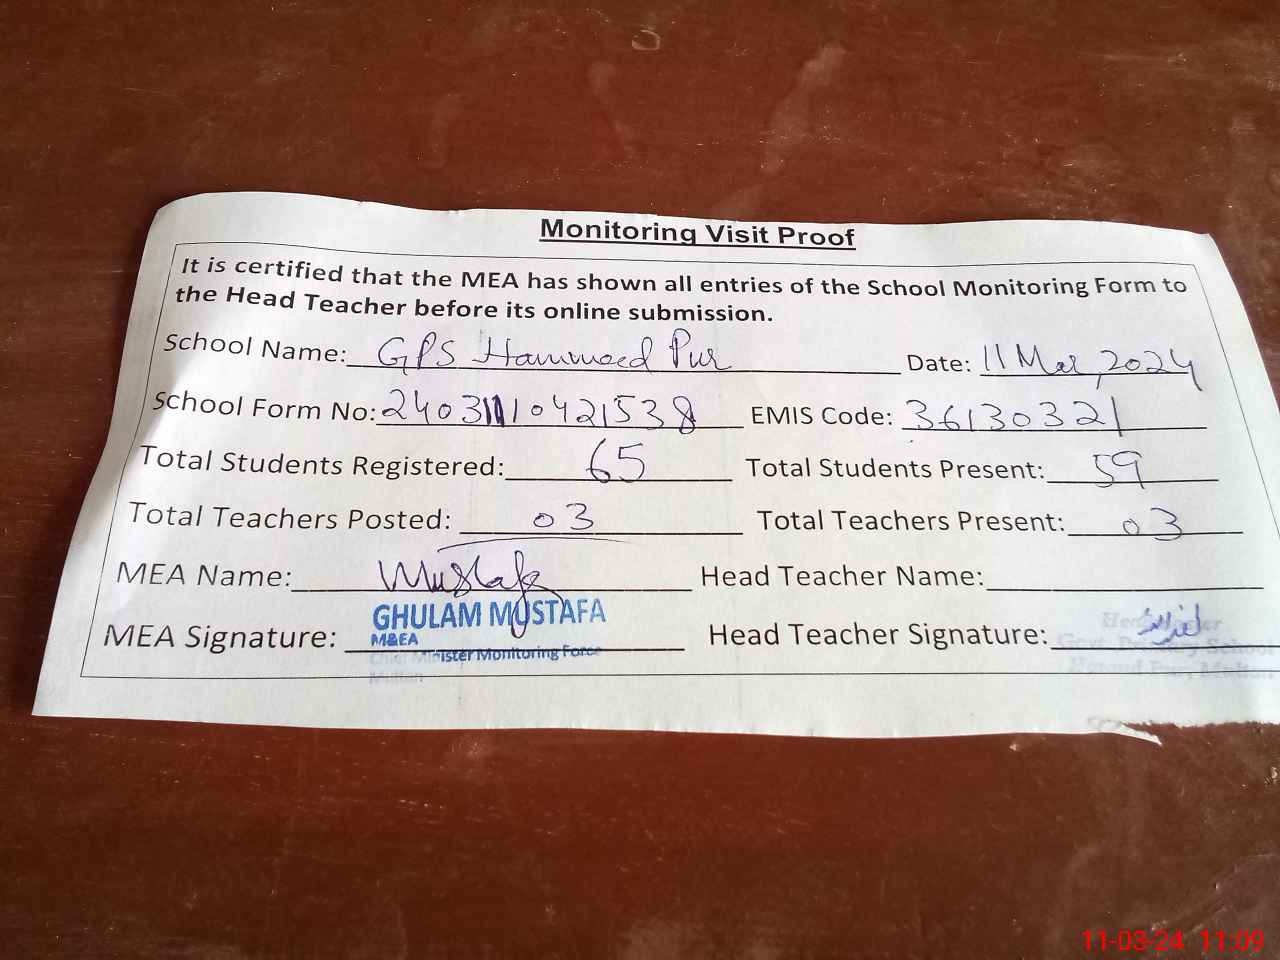 Monitoring Visit Proof
It is certified that the MEA has shown all entries of the School Monitoring Form to
the Head Teacher before its online submission.
School Name: GPS Hammeed Pur Date: 11 Mar, 2024
School Form No: EMIS Code: 36130321
Total Students Registered: 65 Total Students Present: 59
Total Teachers Posted: 03 Total Teachers Present: 03
MEA Name: Mustafa Head Teacher Name:
GHULAM MUSTAFA
M&EA
MEA Signature: Head Teacher Signature:
Chief Minister Monitoring Force
Multan
11-03-24 11:09